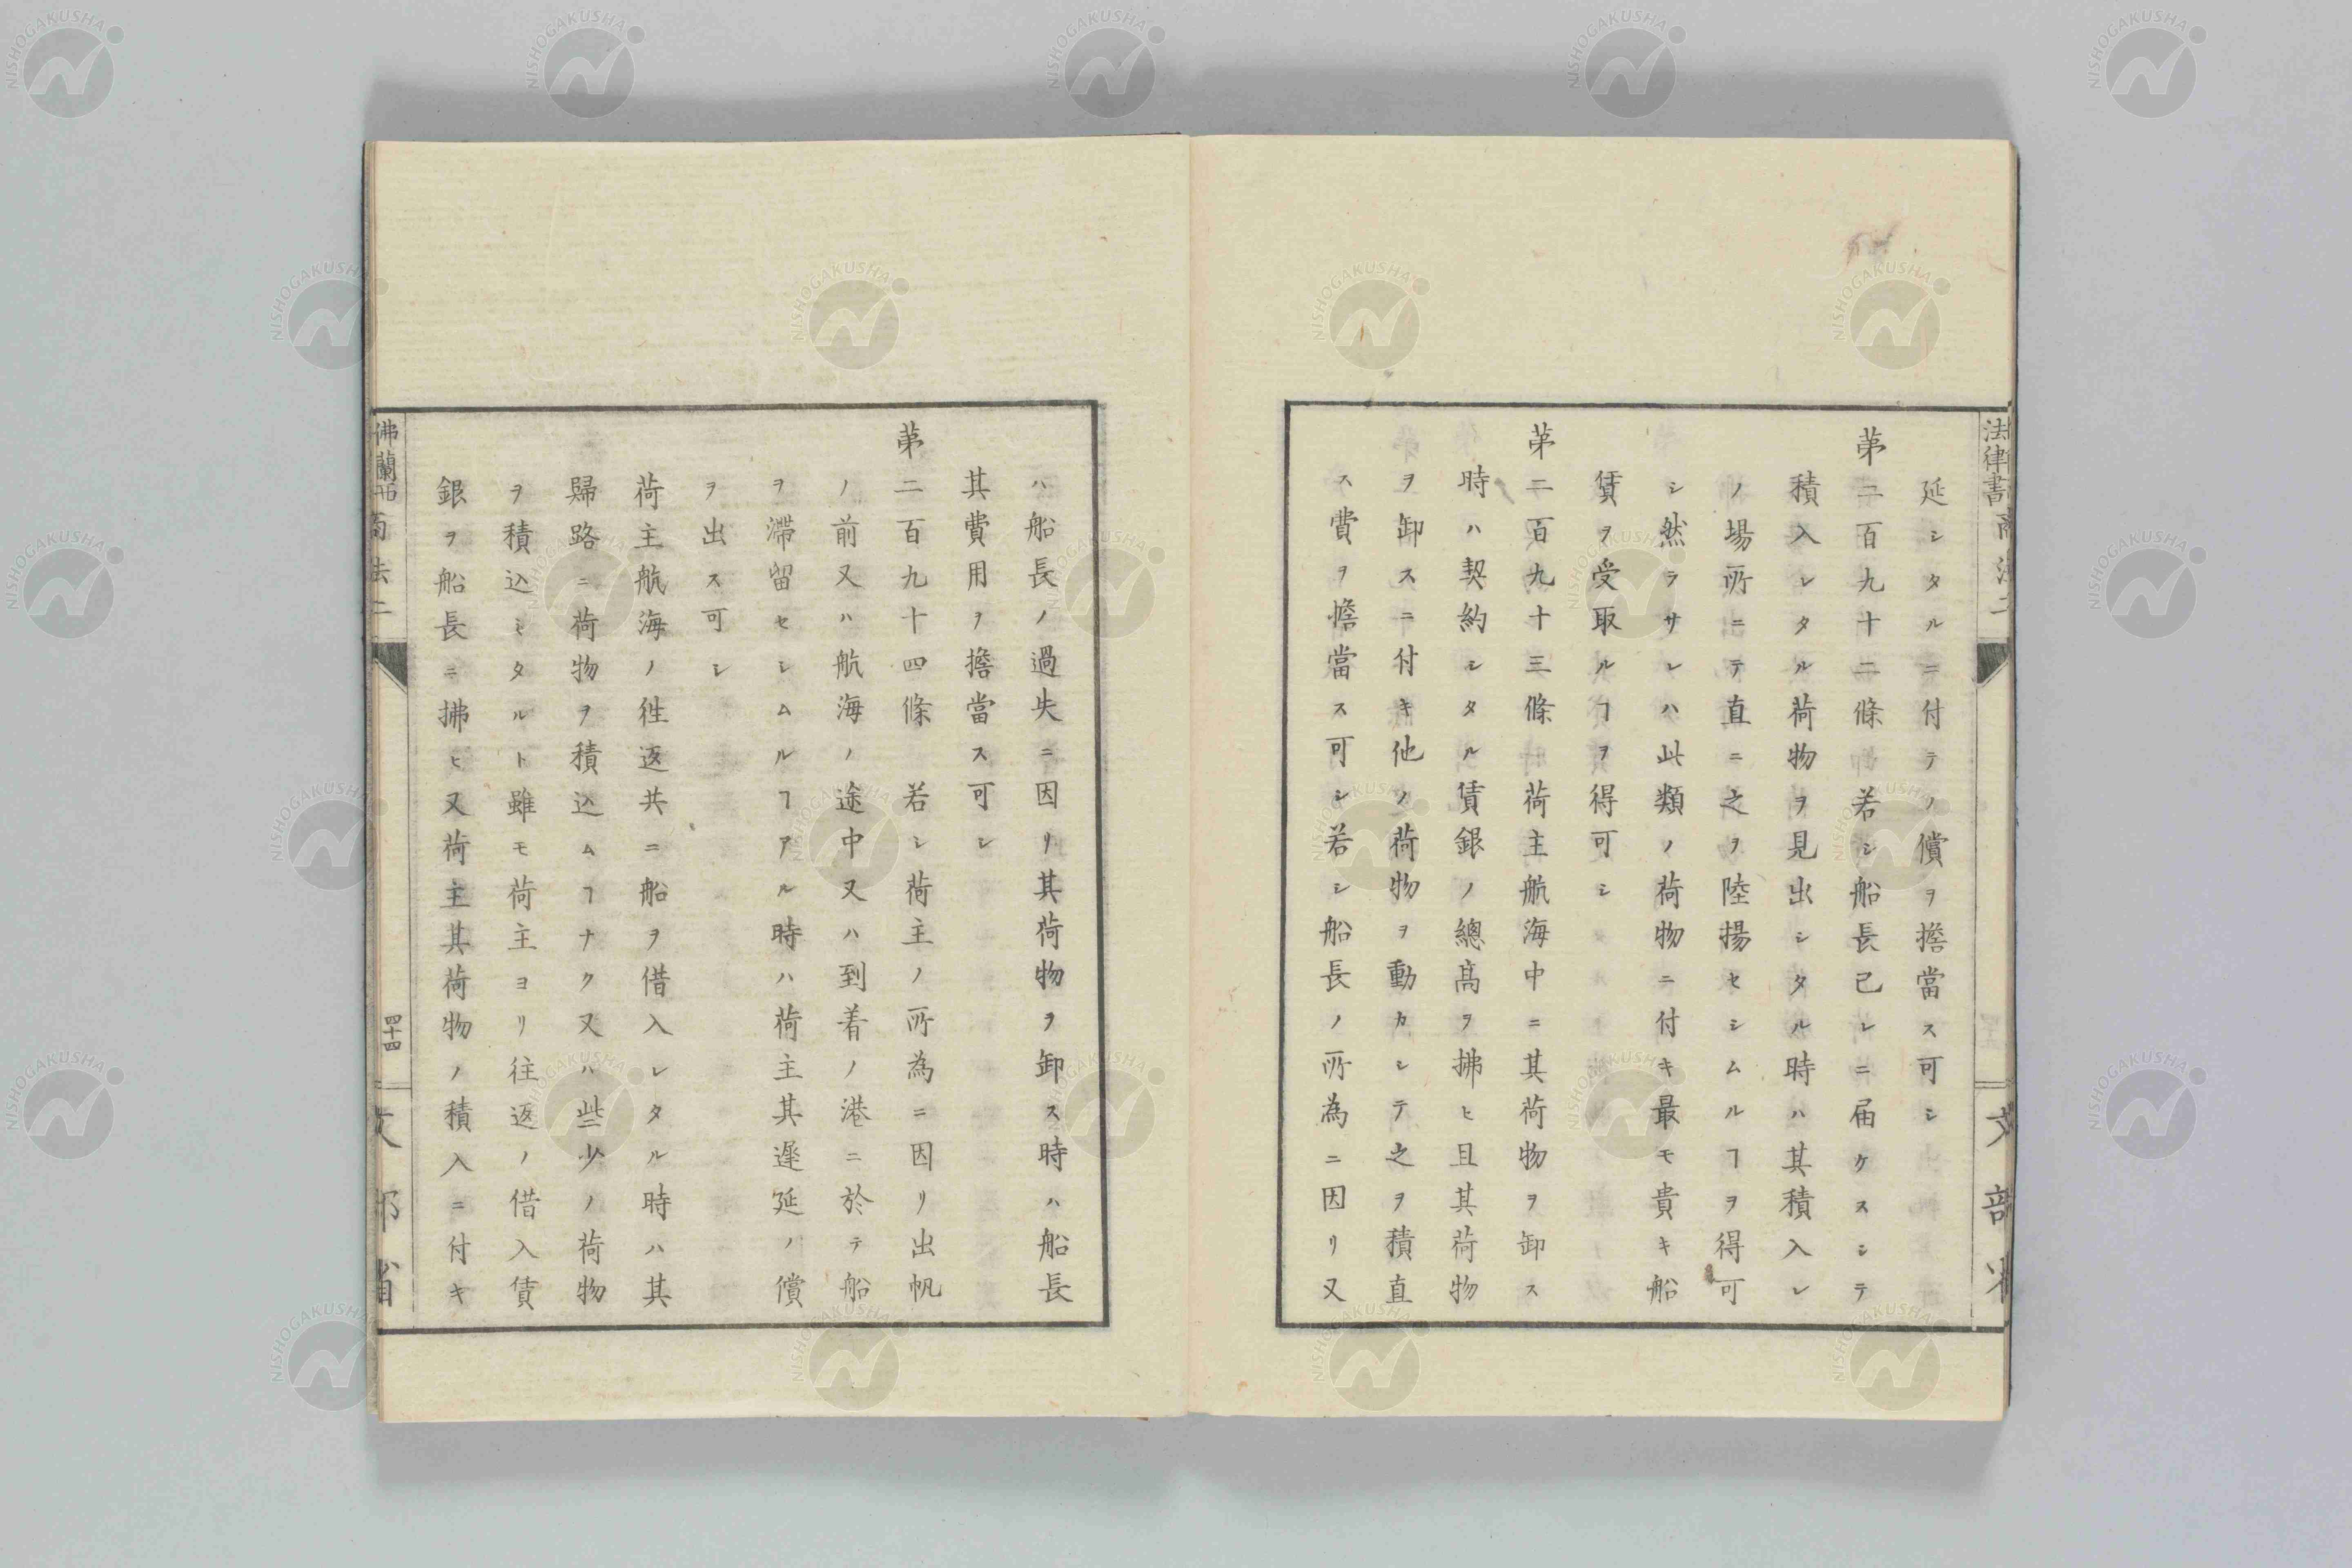 延シタルニ付テノ償ヲ擔當ス可シ
第二百九十二條 若シ船長己レニ届ケスシテ
積入レタル荷物ヲ見出シタル時ハ其積入レ
ノ場所ニテ直ニ之ヲ陸揚セシムルヿヲ得可
シ然ラサレハ此類ノ荷物ニ付キ最モ貴キ船
賃ヲ受取ルヿヲ得可シ
第二百九十三條 荷主航海中ニ其荷物ヲ卸ス
時ハ契約シタル賃銀ノ總高ヲ拂ヒ且其荷物
ヲ卸スニ付キ他ノ荷物ヲ動カシテ之ヲ積直
ス費ヲ擔當ス可シ若シ船長ノ所為ニ因リ又
ハ船長ノ過失ニ因リ其荷物ヲ卸ス時ハ船長
其費用ヲ擔當ス可シ
第二百九十四條 若シ荷主ノ所為ニ因リ出帆
ノ前又ハ航海ノ途中又ハ到着ノ港ニ於テ船
ヲ滯留セシムルヿアル時ハ荷主其遲延ノ償
ヲ出ス可シ
荷主航海ノ徃返共ニ船ヲ借入レタル時ハ其
歸路ニ荷物ヲ積込ムヿナク又ハ些少ノ荷物
ヲ積込ミタルト雖モ荷主ヨリ往返ノ借入賃
銀ヲ船長ニ拂ヒ又荷主其荷物ノ積入ニ付キ
佛蘭西商法二
四十四
文部省